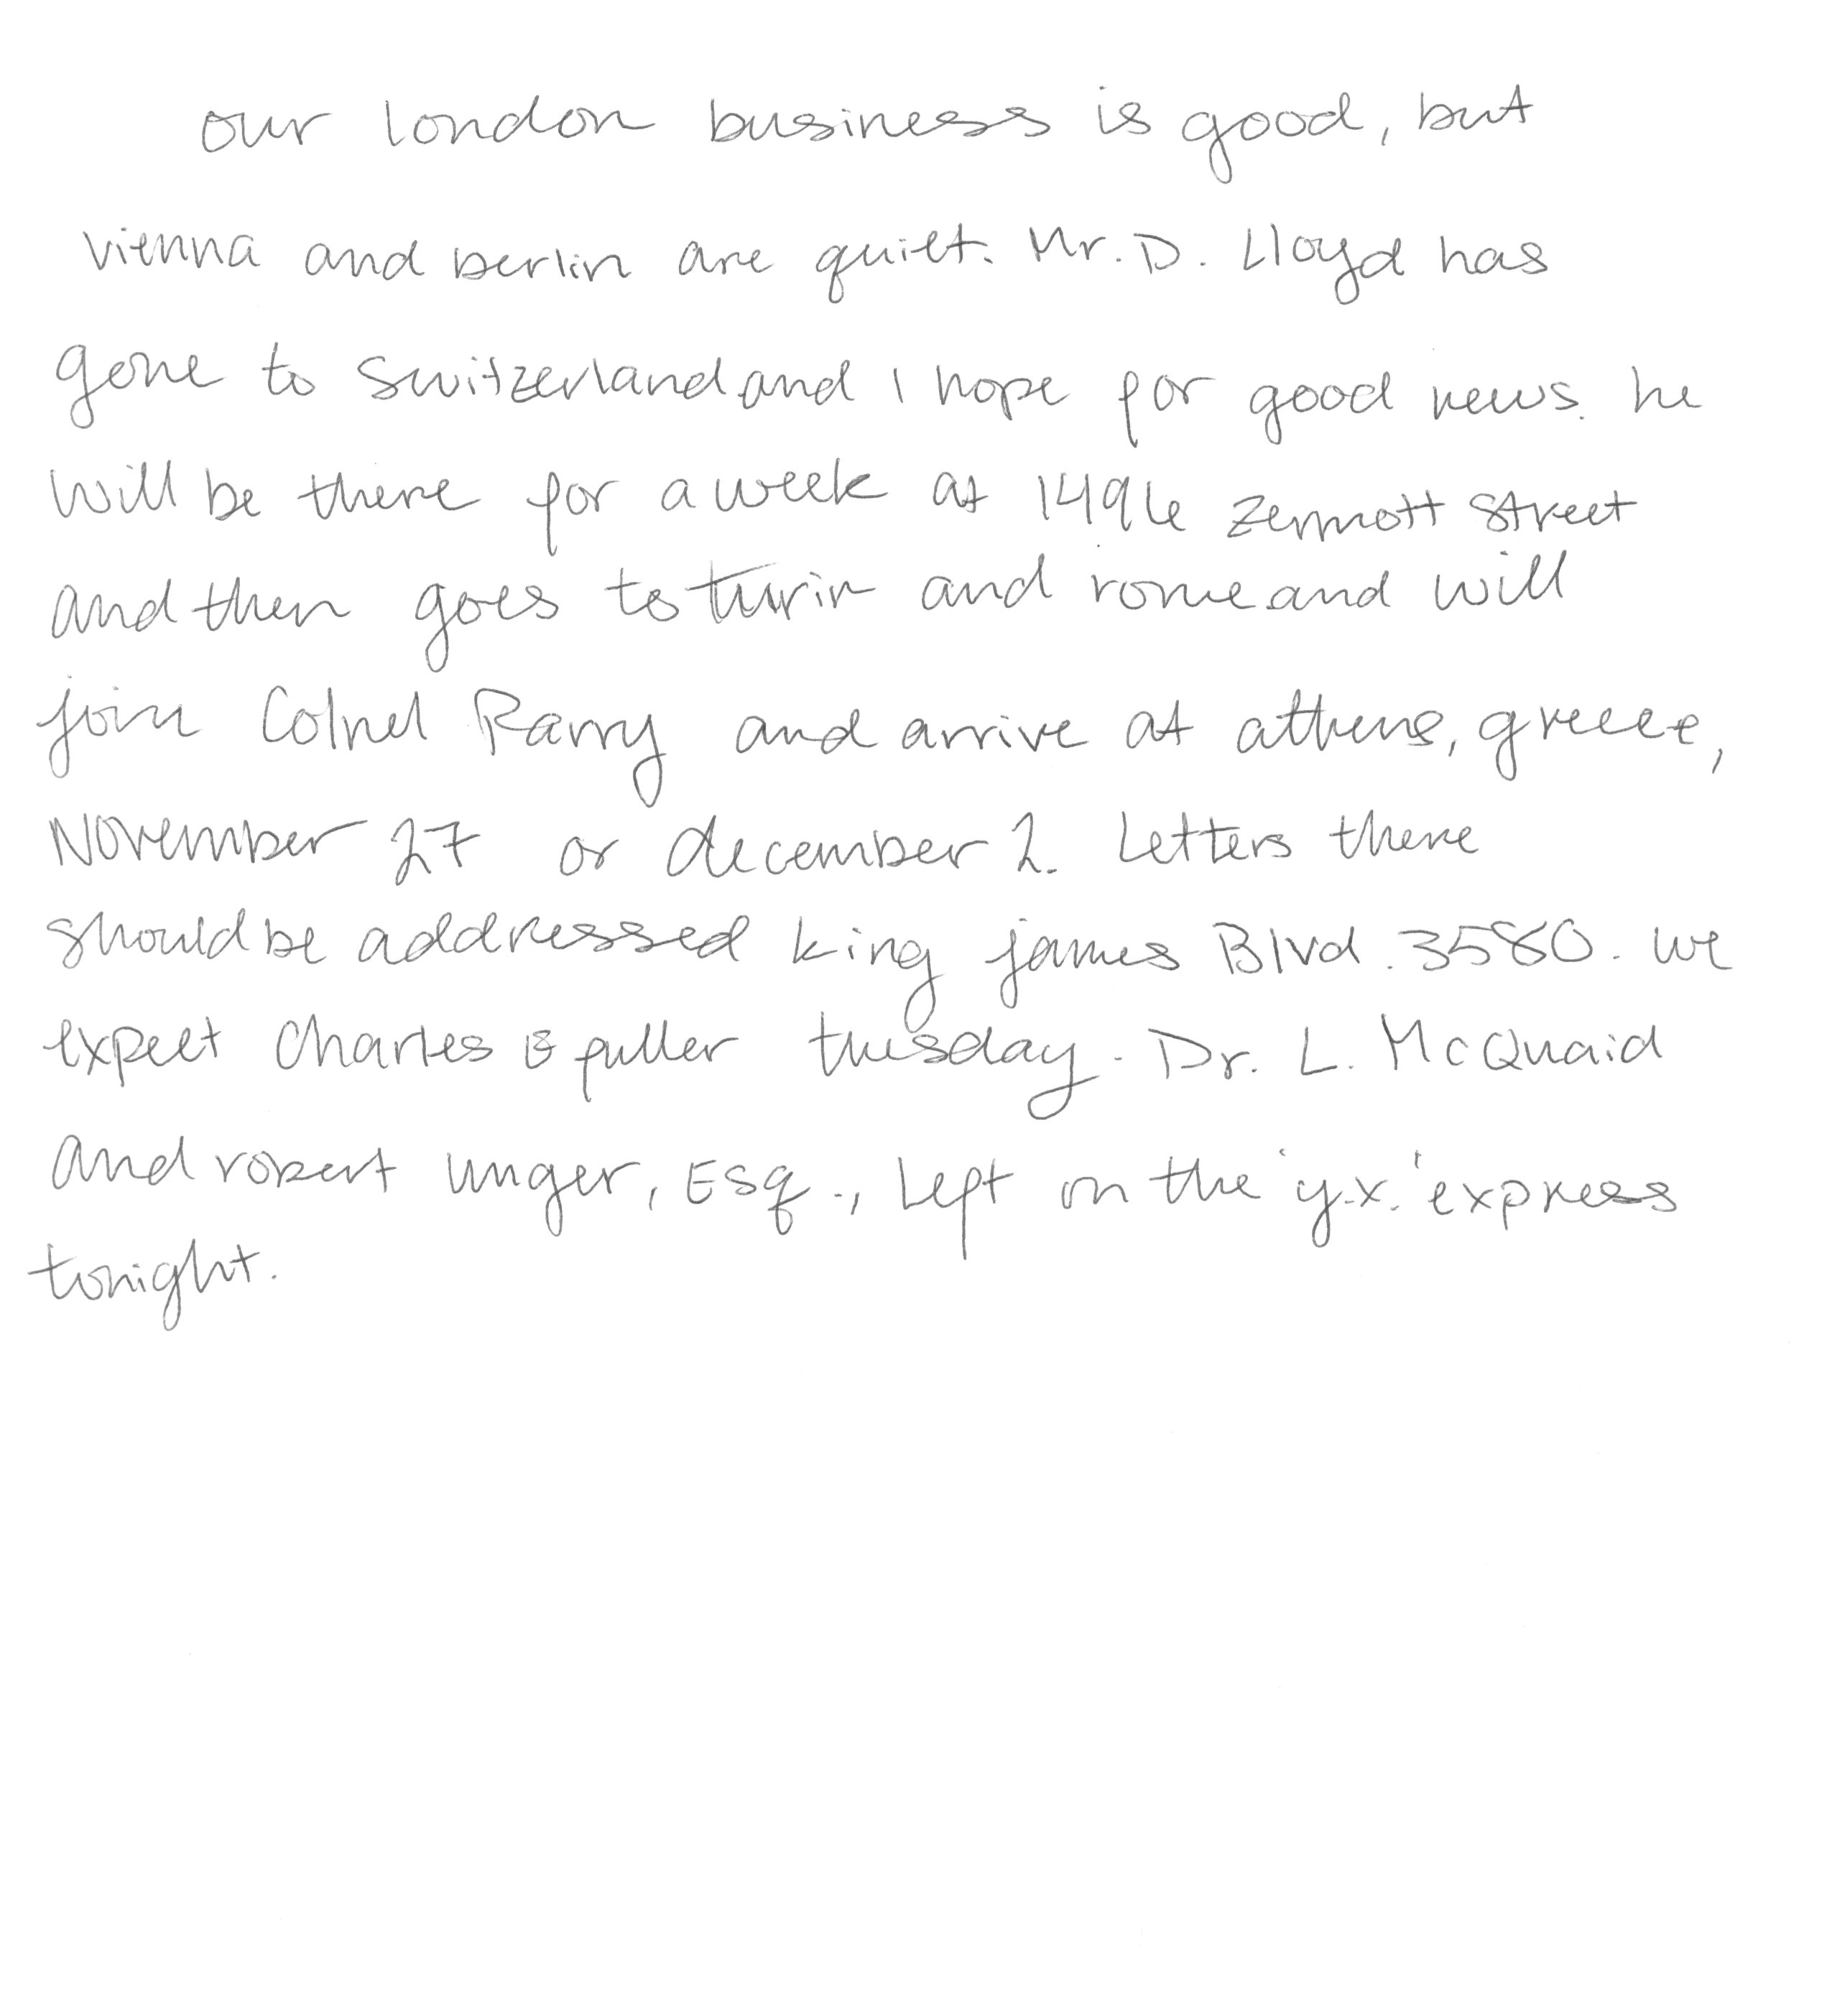 our london business is good, but
vienna and berlin are quiet. Mr. D. Lloyd has
gone to switzerland and I hope for good news. he
will be there for a week at 1496 zermott street
and then goes to turin and rome and will
join Colnel Parry and arrive at athens, greece,
November 27 or december 2. Letters there
should be addressed king james Blvd. 3580. we
expect Charles puller tuesday. Dr. L. McQuaid
and robert unger, Esq., left on the 'y.x.' express
tonight.